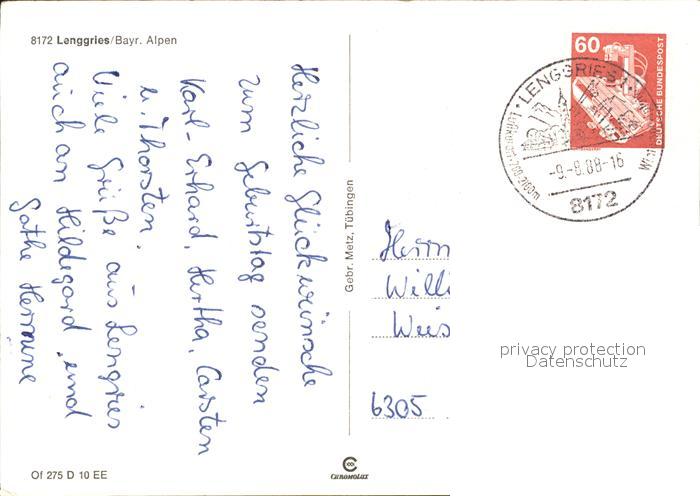 8172 Lenggries/Bayr. Alpen
Herzliche Glückwünsche
zum Geburtstag senden
Karl-Erhard, Hertha, Carsten
u. Thorsten.
Viele Grüße aus Lengries
auch an Hildegard und
Gothe Hermine
Gebr. Metz, Tübingen
60
DEUTSCHE BUNDESPOST
LENGGRIES 1
Luftkurort · 700-2100m
-9.-8.88-16
8172
Herrn
Willi
Weis
6305
privacy protection
Datenschutz
Of 275 D 10 EE
CHROMOLUX